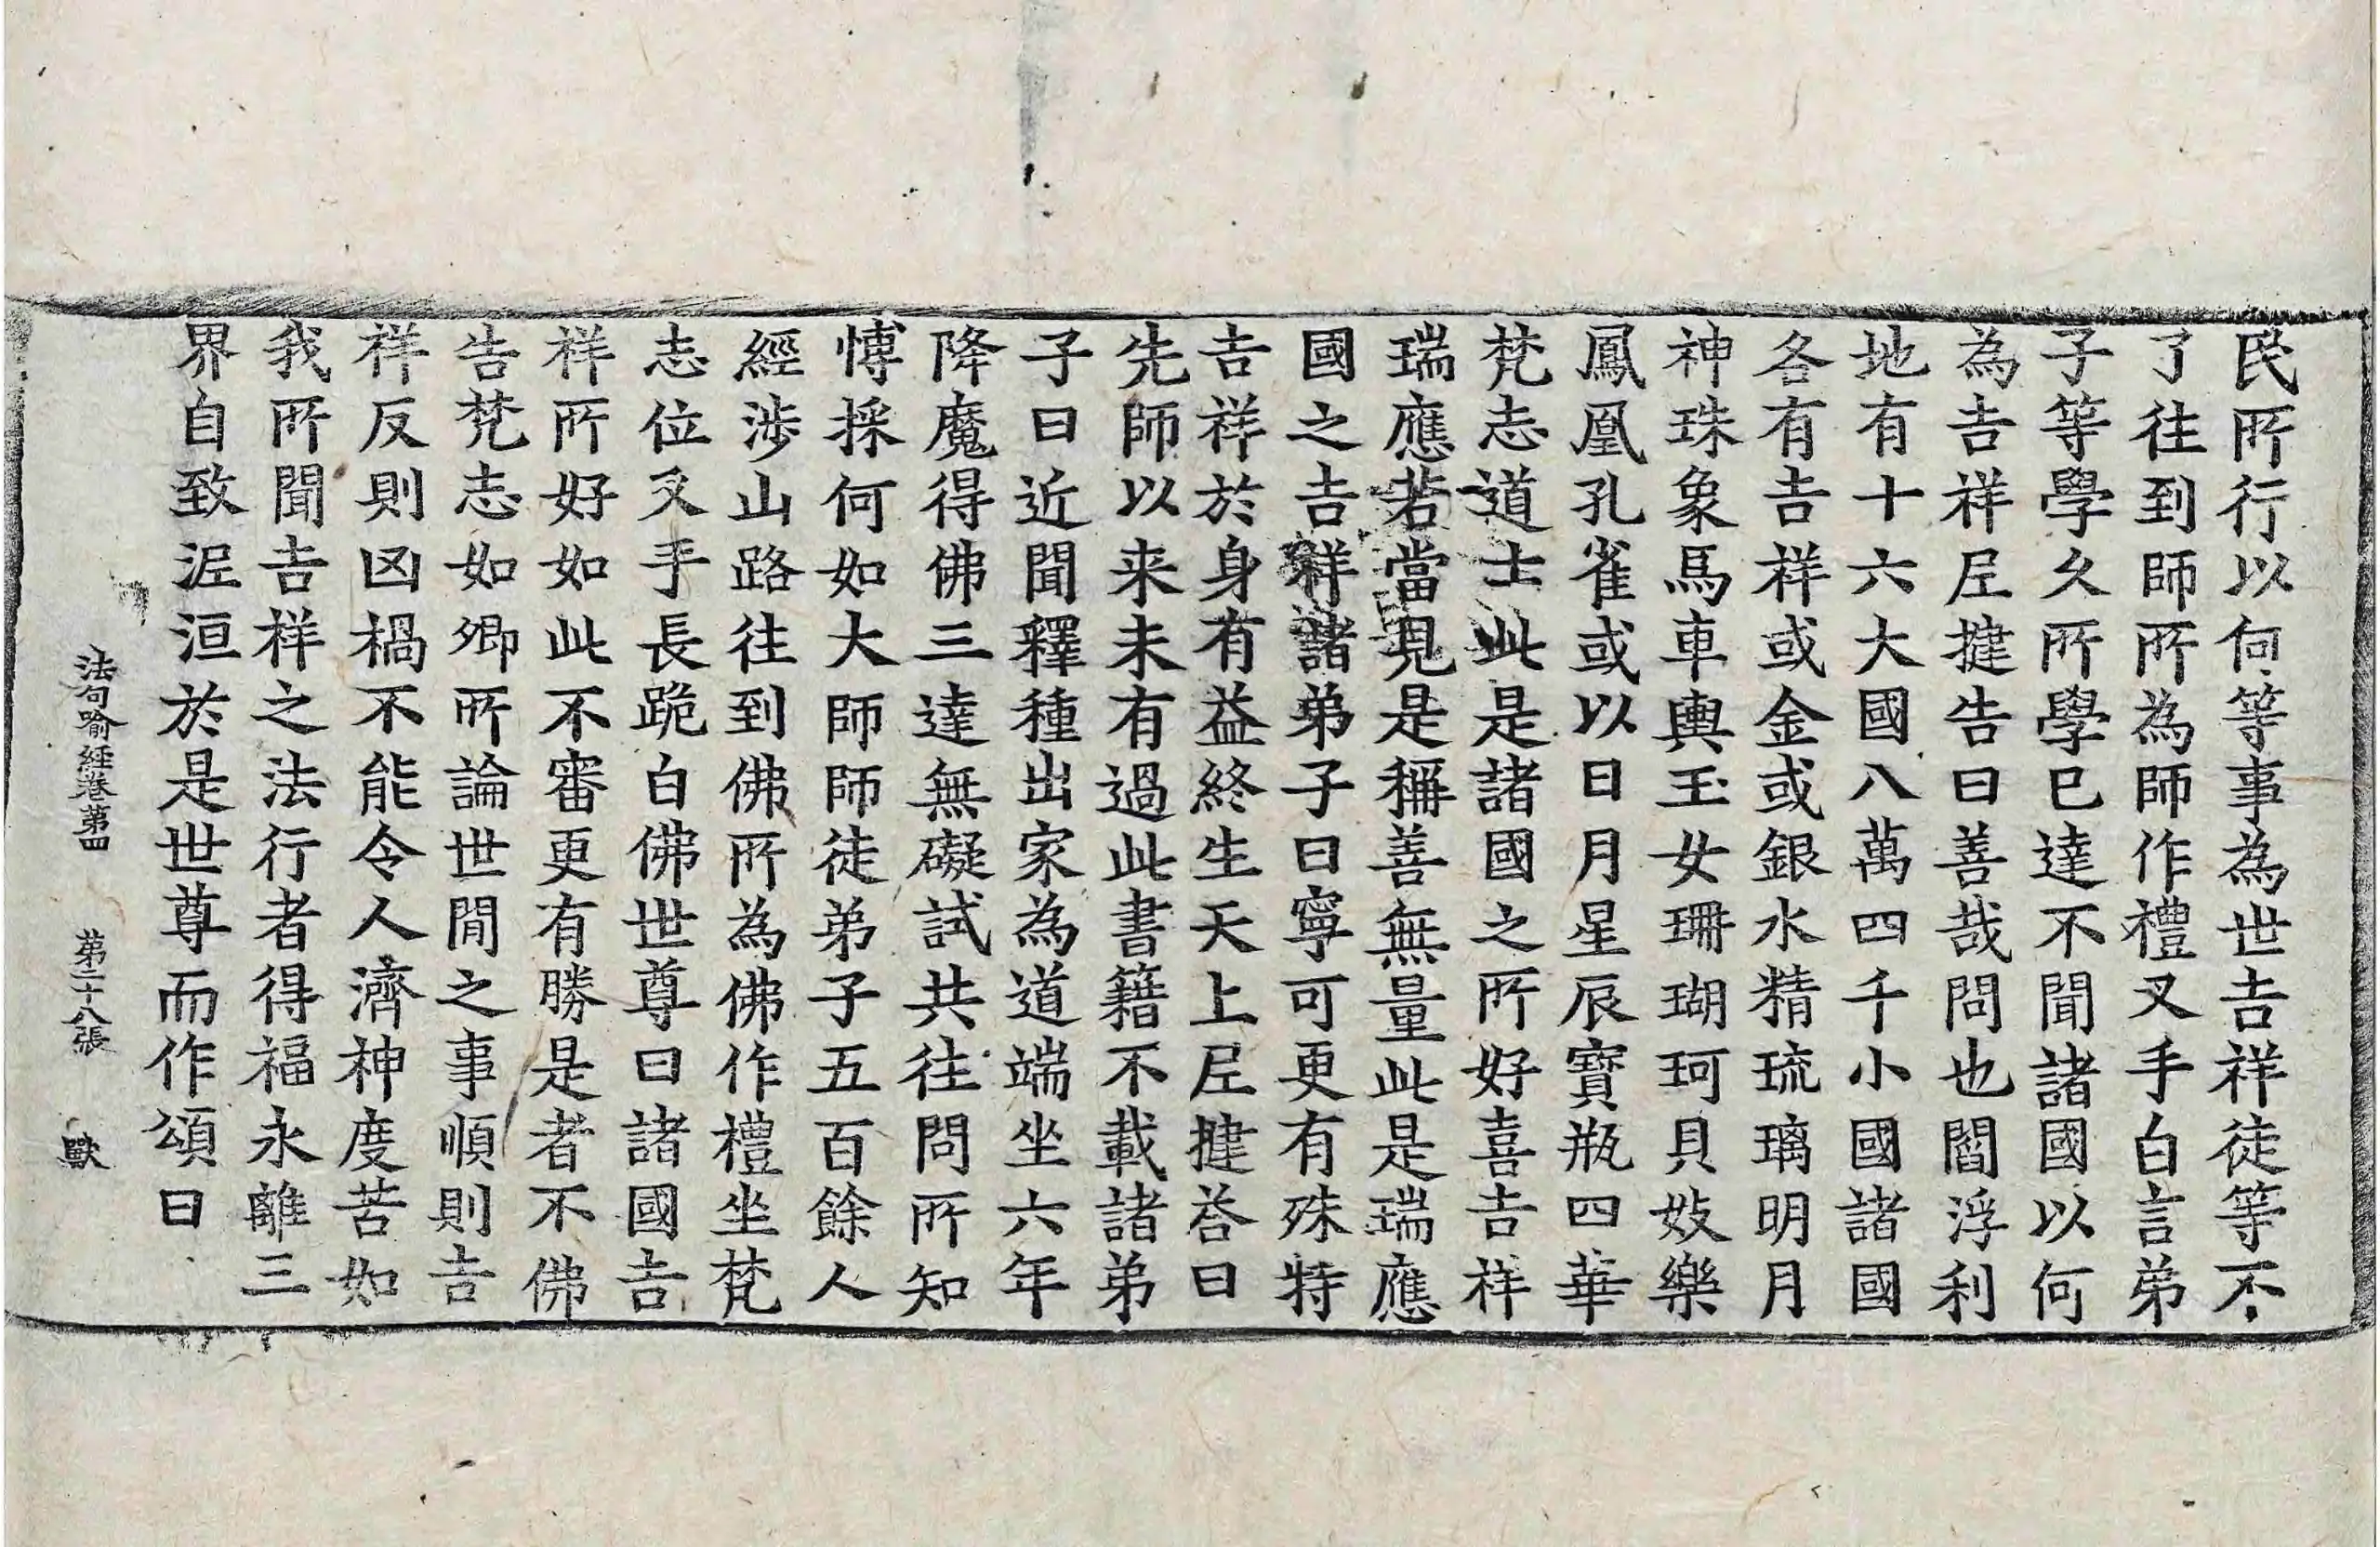 民所行以何等事為世吉祥徒等不
了往到師所為師作禮叉手白言弟
子等學久所學已達不聞諸國以何
為吉祥尼揵告曰善哉問也閻浮利
地有十六大國八萬四千小國諸國
各有吉祥或金或銀水精琉璃明月
神珠象馬車輿玉女珊瑚珂貝妓樂
鳳凰孔雀或以日月星辰寶瓶四華
梵志道士此是諸國之所好喜吉祥
瑞應若當見是稱善無量此是瑞應
國之吉祥諸弟子曰寧可更有殊特
吉祥於身有益終生天上尼揵荅曰
先師以来未有過此書籍不載諸弟
子曰近聞釋種出家為道端坐六年
降魔得佛三達無礙試共往問所知
愽採何如大師師徒弟子五百餘人
經涉山路往到佛所為佛作禮坐梵
志位叉手長跪白佛世尊曰諸國吉
祥所好如此不審更有勝是者不佛
告梵志如卿所論世間之事順則吉
祥反則凶禍不能令人濟神度苦如
我所聞吉祥之法行者得福永離三
界自致泥洹於是世尊而作頌曰
法句喻経卷第四 第二十八張 歐